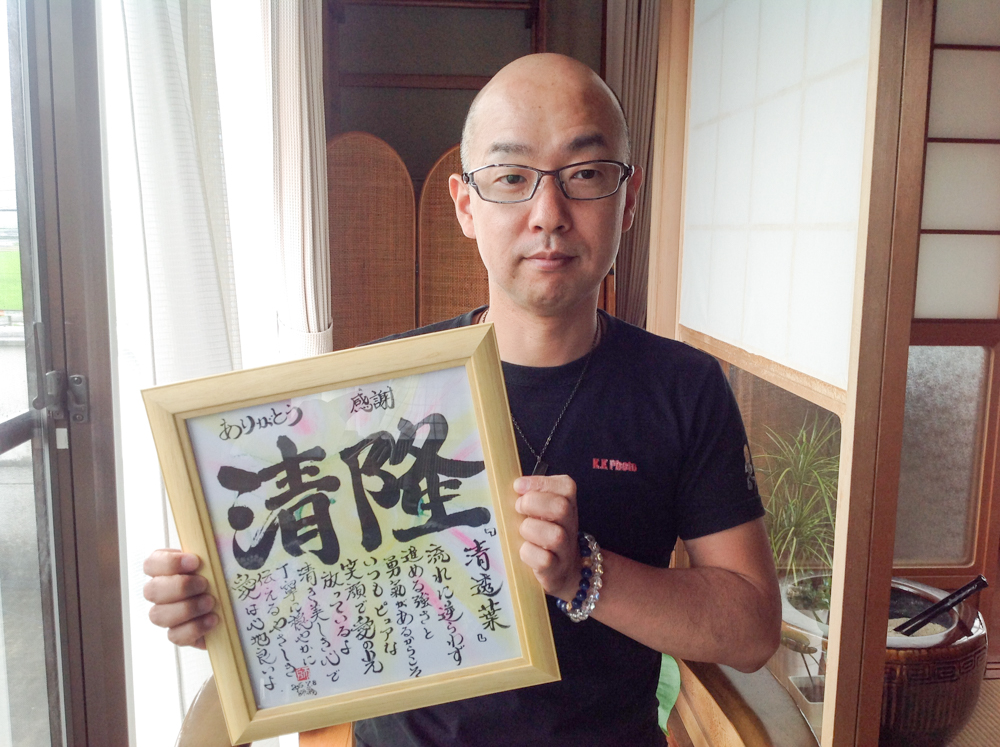 ありがとう 感謝
清隆
流れに逆らわず
進める強さと
勇気があるからこそ
いつも ピュアな
笑顔で愛の光
放っているよ
清き美しき心で
丁寧に穏やかに
伝えるやさしさ
は心地良いよ
K.K Photo